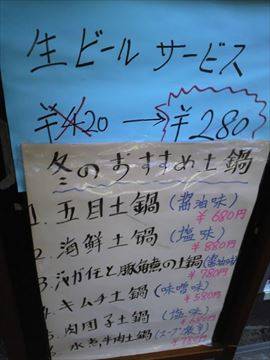 生ビール サービス
¥420 → ¥280
冬のおすすめ土鍋
1. 五目土鍋(醤油味)
¥680円
2. 海鮮土鍋(塩味)
¥880円
3. 豚角煮の土鍋(醤油味)
¥780円
4. キムチ土鍋(味噌味)
¥580円
5. 肉団子土鍋(塩味)
6. 水煮牛肉土鍋
¥780円